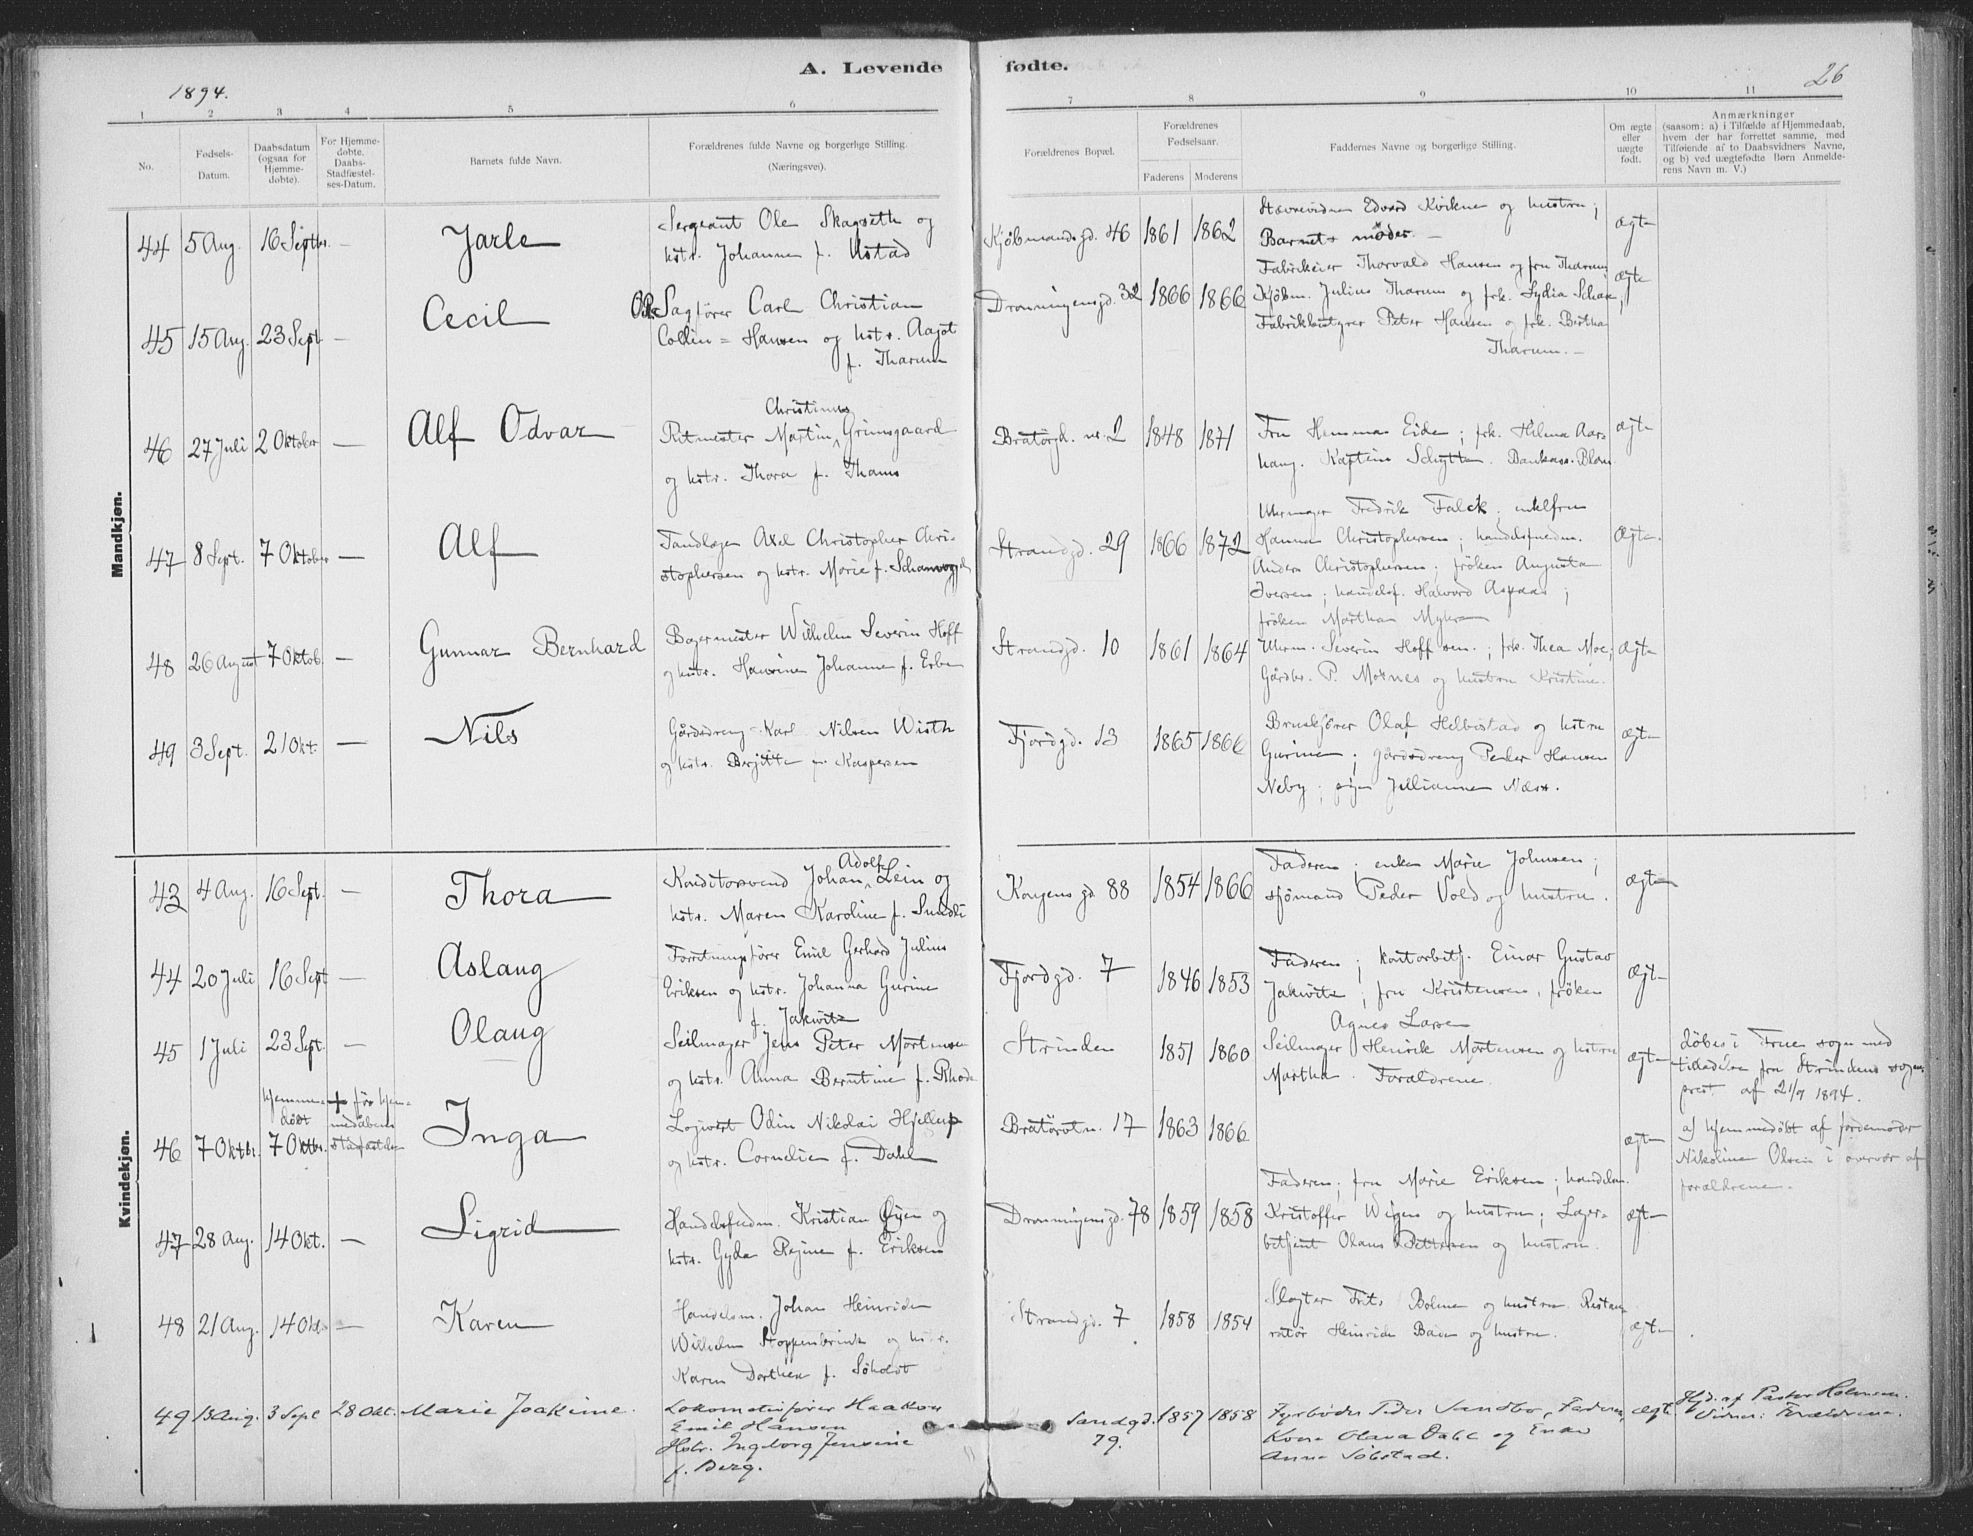 A. Levende fødte.
26
1894.
1 2 3 4 5 6 7 8 9 10 11
No.
Fødsels-Datum.
Daabsdatum (ogsaa for Hjemmedøbte).
For Hjemmedøbte. Daabs-Stadfæstelses-Datum.
Barnets fulde Navn.
Forældrenes fulde Navne og borgerlige Stilling.
(Næringsvei).
Forældrenes Bopæl.
Forældrenes Fødselsaar.
Faderens Moderens
Faddernes Navne og borgerlige Stilling.
Om ægte eller uægte født.
Anmærkninger
(saasom: a) i Tilfælde af Hjemmedaab,
hvem der har forrettet samme, med
Tilføiende af to Daabsvidners Navne,
og b) ved uægtefødte Børn Anmelde-
rens Navn m. V.)
Mandkjøn.
44 5 Aug. 16 Septbr. — Jarle
Sergeant Ole Skagseth og
hstr. Johanne f. Ustad
Kjøbmandsgd. 46 1861 1862
Edvard Kvikne og hustru;
Barnets moder. —
ægte
45 15 Aug. 23 Sept. — Cecil
Sagfører Carl Christian
Collin = Hansen og hstr. Aagot
f. Tharum
Dronningensgd. 32 1866 1866
Fabrikeier Thorvald Hansen og fru Tharum
Kjøbm. Julius Tharum og frk. Lydia
Fabrikbestyrer Peter Hansen og frk. Bertha
Tharum. —
ægte
46 27 Juli 2 Oktober — Alf Odvar
Christinus
Ritmester Martin Grimsgaard
og hstr. Thora f. Thams
Bratørgd. nr. 2 1848 1871
Fru Eide; frk. Hilma Aar-
haug. Kaptein Schytte. Blom
ægte
47 8 Sept. 7 Oktober — Alf
Tandlæge Axel Christopher Chri-
stophersen og hstr. Marie f.
Strandgd. 29 1866 1872
Uhrmager Fredrik Falck, enkefru
Hanna Christophersen; handelsfuldm.
Anders Christophersen; frøken Augusta
Iversen; handelsf. Halvord Aspaas;
frøken Martha
ægte.
48 26 August 7 Oktob. — Gunnar Bernhard
Bagermester Wilhelm Severin Hoff
og hstr. Johanne f.
Strandgd. 10 1861 1864
Uhrm. Severin Hoff sen.; frk. Thea Moe;
Gårdbr. P. Moxnes og hustru Kristine.
ægte
49 3 Sept. 21 Okt. — Nils
Gårdsdreng Karl Nilsen Wisth
og hstr. Berjitte f. Kaspersen
Fjordgd. 13 1865 1866
Olaf og hstru
Gurine; gårdsdreng Peder Hansen
Neby; pige Julianne Næss.
ægte
Kvindekjøn.
43 4 Aug. 16 Sept. — Thora
Adolf
Konditorsvend Johan Lein og
hstr. Maren Karoline f. Sundli
Kongensgd 88 1854 1866
Faderen; enke Marie Johnsen;
sjømand Peder Vold og hustru.
ægte
44 20 Juli 16 Sept — Aslaug
Forretningsfører Emil Gerhard Julius
Eriksen og hstr. Johanna Gurine
f. Jakwitz
Fjordgd. 7 1846 1853
Faderen; kontorbetj. Einar Gustav
Jakwitz; fru Kristensen, frøken
Agnes Larsen
ægte
45 1 Juli 23 Sept. — Olaug
Seilmager Jens Peter Mortensen
og hstr. Anna Berntine f. Rhode
Strinden 1851 1860
Seilmager Henrik Mortensen og hstru
Martha. Forældrene.
ægte
døbes i Frue sogn med
tilladelse fra Strindens sogne-
prest af 21/9 1894.
46 7 Oktbr. hjemmedøbt 7 Oktbr. + før hjemmedåbens stadfæstelse Inga
Logvert Odin Nikolai Hjellup
og hstr. Cornelie f. Dahl
Bratørvtn. 17 1863 1866
ægte
a) hjemmedøbt af jordemoder
Nikoline Olsen i overvær af
forældrene.
47 28 Aug. 14 Okt. — Sigrid
Handelsfuldm. Kristian Øyen og
hstr. Gyda Regine f. Eriksen
Dronningensgd. 78 1859 1858
Faderen; fru Marie Eriksen; handelsm.
Kristoffer Wigen og hustru; Lager-
betjent Olaus Pettersen og hustru.
ægte
48 21 Aug. 14 Okt. — Karen
Handelsm. Johan Heinrich
Wilhelm Stoppenbrink og hstr.
Karen Dorthea f. Søholdt
Strandgd. 7 1858 1854
Slagter Frits Bohne og hustru. Restau-
ratør Heinrich og hustru.
ægte
49 13 Aug. 3 Sept 28 Okt. Marie Joakime.
Lokomotivfører Haakon
Emil Hansen
Hstr. Ingeborg Jensine
f. Berg.
Sandgd.
79. 1857 1858
Fyrbøder Peder Sandbo, Faderen,
Kone Olava Dahl og Enke
Anna Søbstad.
ægte
Hjd. af Pastor Holmsen.
Vidner: Forældrene.